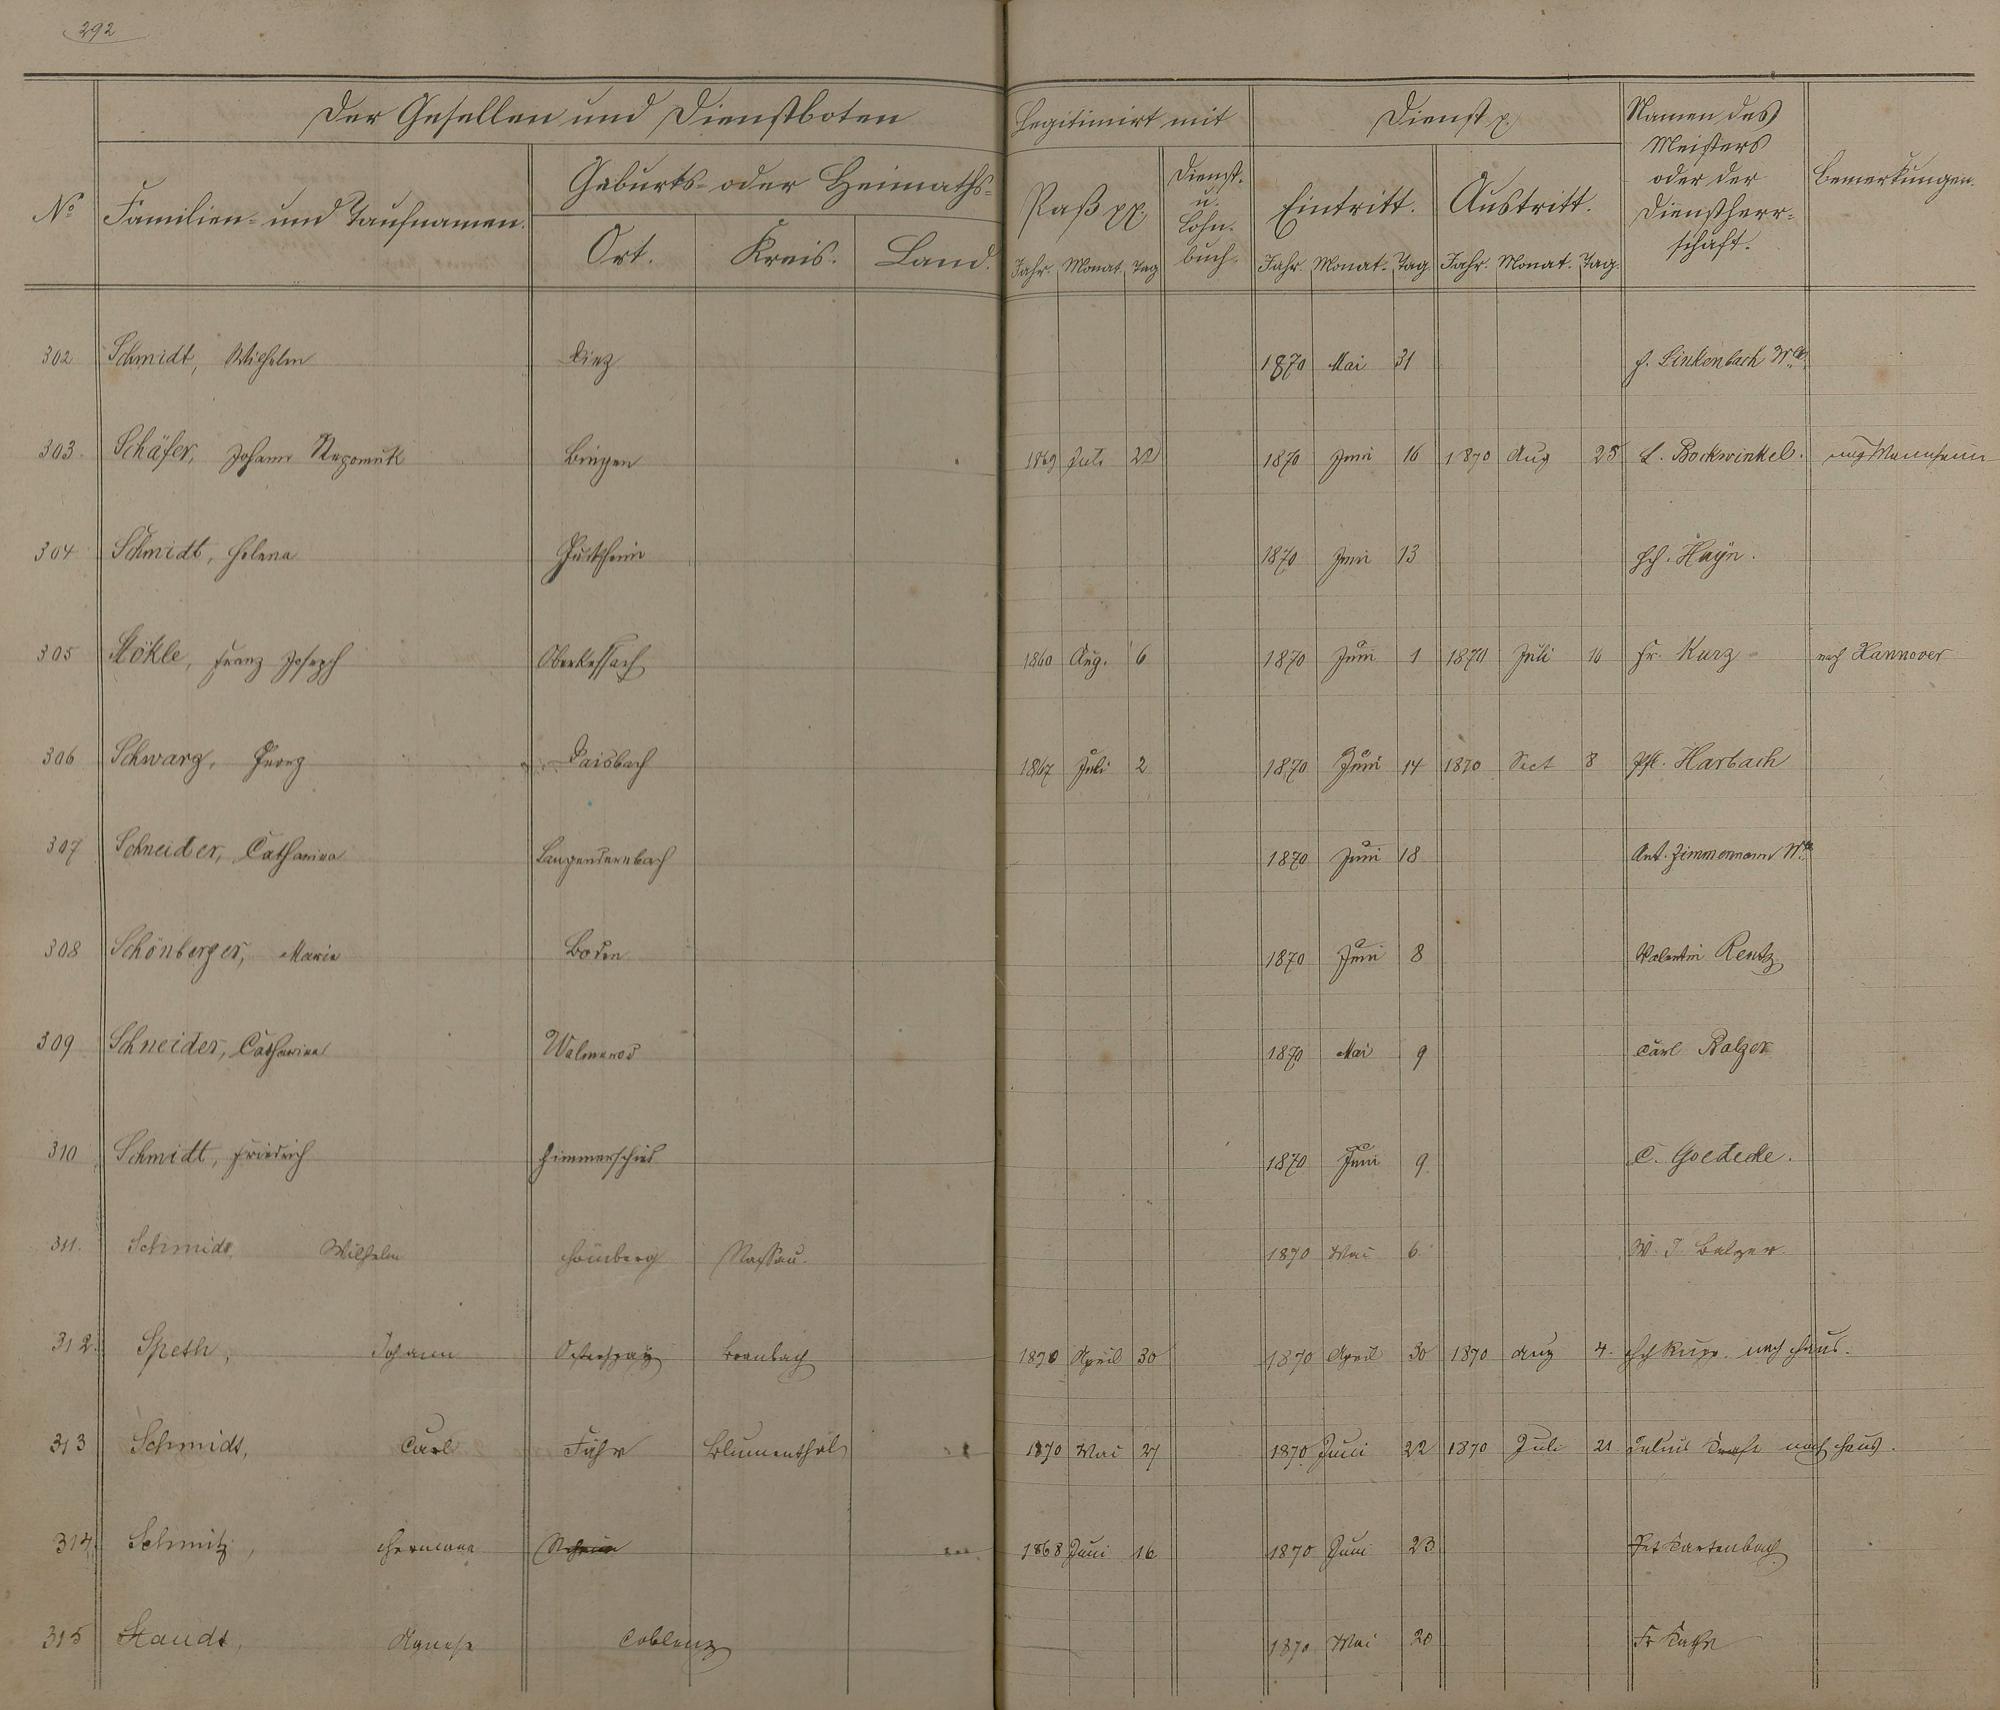 292
Der Gesellen und Dienstboten
Legitimirt mit
Dienst p.
Namen des Meisters oder der Dienstherrschaft.
Bemerkungen.
No
Familien- und Taufnamen.
Geburts- oder Heimaths-
Paß pp.
Dienst- u. Lohn-buch.
Eintritt.
Austritt.
Ort. Kreis. Land.
Jahr. Monat Tag
Jahr Monat. Tag
Jahr. Monat. Tag.
302 Schmidt, Wilhelm Diez 1870 Mai 31 Linkenbach Wb.
303 Schäfer, Johann Nepomuk Bingen 1869 Juli 22 1870 Juni 16 1870 Aug 25 L. Bockwinkel. nach Mannheim
304 Schmidt, Helena 1870 Juni 13 Hch. Hayn.
305 Stökle, Franz Joseph Oberkessach 1860 Aug. 6 1870 Juni 1 1870 Juli 16 Fr. Kurz nach Hannover
306 Schwarz, Georg Daisbach 1867 Juli 2 1870 Juni 14 1870 Sept 8 Harbach
307 Schneider, Catharina Langendernbach 1870 Juni 18 Ant. Zimmermann Wb
308 Schönberger, Marie Boden 1870 Juni 8 Valentin Rentz
309 Schneider, Catharina Walmerod 1870 Mai 9 Carl Balzer
310 Schmidt, Friedrich Zimmerschied 1870 Juni 9 C. Goedecke.
311. Schmidt Wilhelm Homberg Nassau. 1870 Mai 6 W. J. Balzer
312. Speth, Johann Osterspay Braubach 1870 April 30 1870 April 30 1870 Aug 4. Hch Rupp. nach Haus.
313 Schmidt, Carl Blumenthal 1870 Mai 27 1870 Juni 22 1870 Juli 21 Julius nach Haus.
314 Schmitz, Hermann 1868 Juni 16 1870 Juni 23 Pet Kartenbach
315 Staudt, Agnese Coblenz 1870 Mai 20 Fr